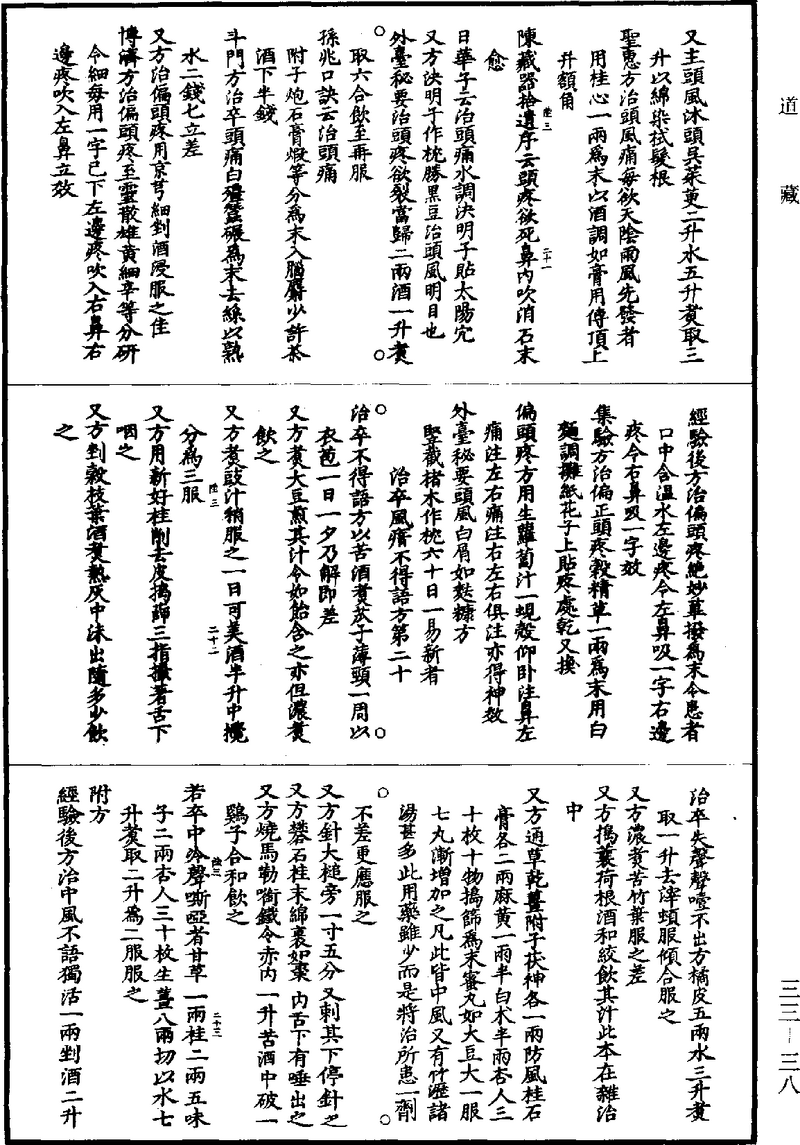 道藏
又主頭風沐頭吳茱萸二升水五升煑取三
升以綿染拭髮根
聖惠方治頭風痛每欲天陰雨風先發者
用桂心一兩爲末以酒調如膏用傅頂上
并額角
陳藏器拾遺序云頭疼欲死鼻內吹消石末
愈
陸三
二十一
日華子云治頭痛水調決明子貼太陽穴
又方決明子作枕勝黑豆治頭風明目也
外臺秘要治頭疼欲裂當歸二兩酒一升煑
取六合飲至再服
孫兆口訣云治頭痛
附子炮石膏煅等分爲末入腦麝少許茶
酒下半錢
斗門方治卒頭痛白殭蠶碾爲末去絲以熟
水二錢匕立差
又方治偏頭疼用京芎細剉酒浸服之佳
博濟方治偏頭疼至靈散雄黃細辛等分研
令細每用一字已下左邊疼吹入右鼻右
邊疼吹入左鼻立效
經驗後方治偏頭疼絕妙蓽撥爲末令患者
口中含溫水左邊疼令左鼻吸一字右邊
疼令右鼻吸一字效
集驗方治偏正頭疼穀精草一兩爲末用白
麵調攤紙花子上貼疼處乾又換
偏頭疼方用生蘿蔔汁一蜆殼仰卧注鼻左
痛注左右痛注右左右俱注亦得神效
外臺秘要頭風白屑如麩糠方
竪截楮木作枕六十日一易新者
治卒風瘖不得語方第二十
治卒不得語方以苦酒煑芥子薄頸一周以
衣苞一日一夕乃解即差
又方煑大豆煎其汁令如飴含之亦但濃煑
飲之
又方煑豉汁稍服之一日可美酒半升中攪
分爲三服
陸三
二十二
又方用新好桂削去皮搗篩三指撮著舌下
咽之
又方剉穀枝葉酒煑熱灰中沫出隨多少飲
之
治卒失聲聲噎不出方橘皮五兩水三升煑
取一升去滓頓服傾合服之
又方濃煑苦竹葉服之差
又方搗蘘荷根酒和絞飲其汁此本在雜治
中
又方通草乾薑附子茯神各一兩防風桂石
膏各二兩麻黃一兩半白术半兩杏人三
十枚十物搗篩爲末蜜丸如大豆大一服
七丸漸增加之凡此皆中風又有竹瀝諸
湯甚多此用藥雖少而是將治所患一劑
不差更應服之
又方針大槌旁一寸五分又刺其下停針之
又方礬石桂末綿裹如棗內舌下有唾出之
又方燒馬勒銜鐵令赤內一升苦酒中破一
鷄子合和飲之
若卒中冷聲嘶啞者甘草一兩桂二兩五味
子二兩杏人三十枚生薑八兩切以水七
升煑取二升爲二服服之
陸三
二十三
附方
經驗後方治中風不語獨活一兩剉酒二升
三三—三八